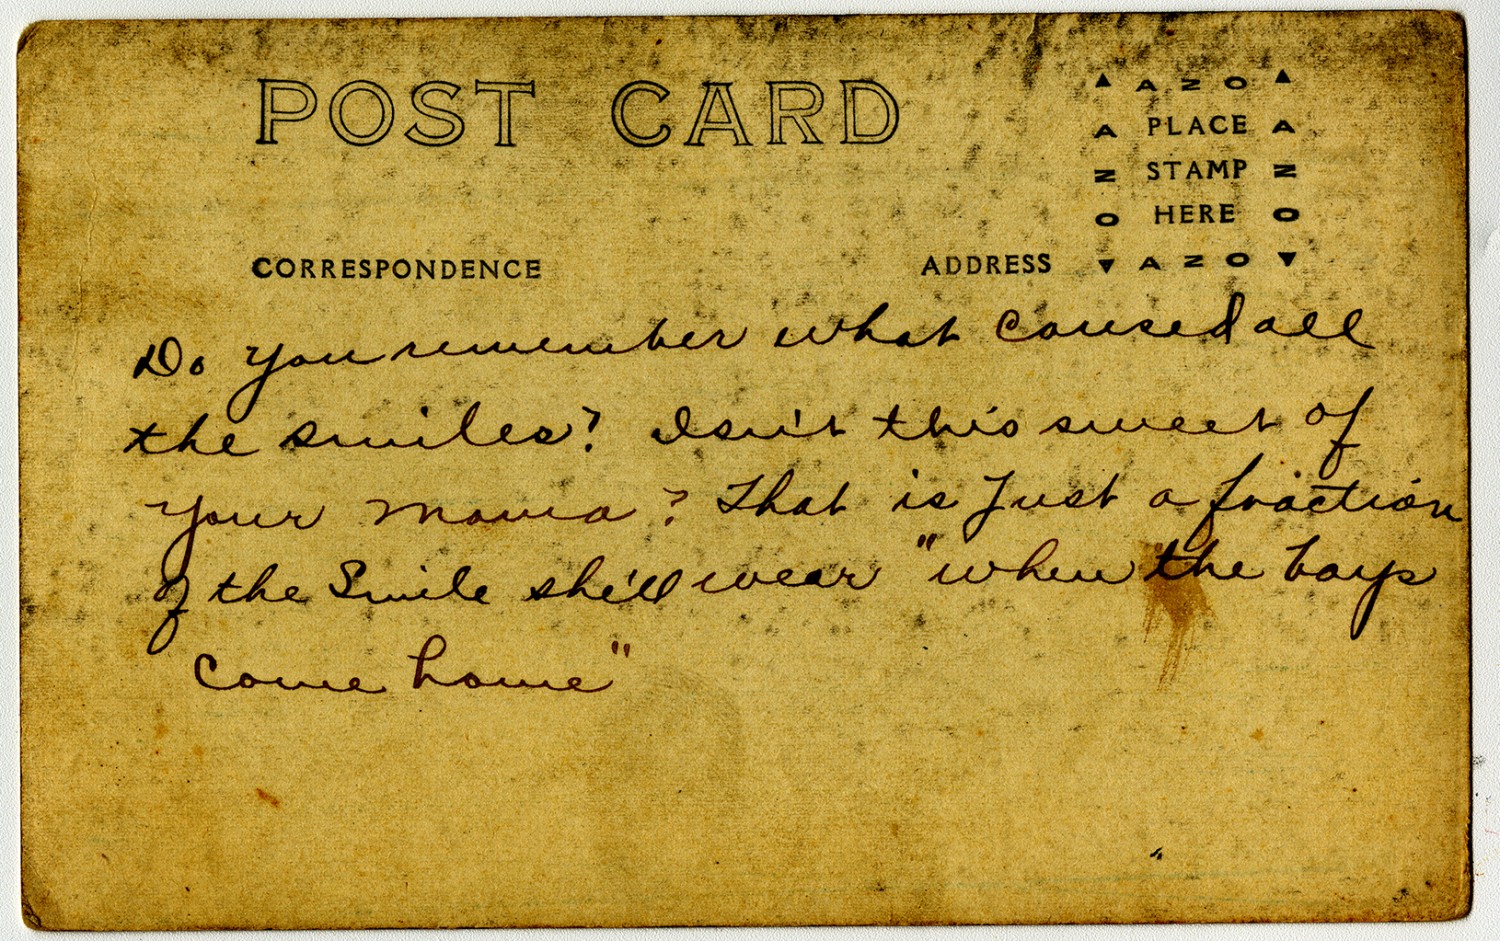 POST CARD
▲ AZO ▲
A PLACE A
N STAMP N
O HERE O
▼ AZO ▼
CORRESPONDENCE
ADDRESS
Do you remember what caused all
the smiles? Isn't this sweet of
your mama? That is Just a fraction
of the Smile she'll wear "when the boys
come home"